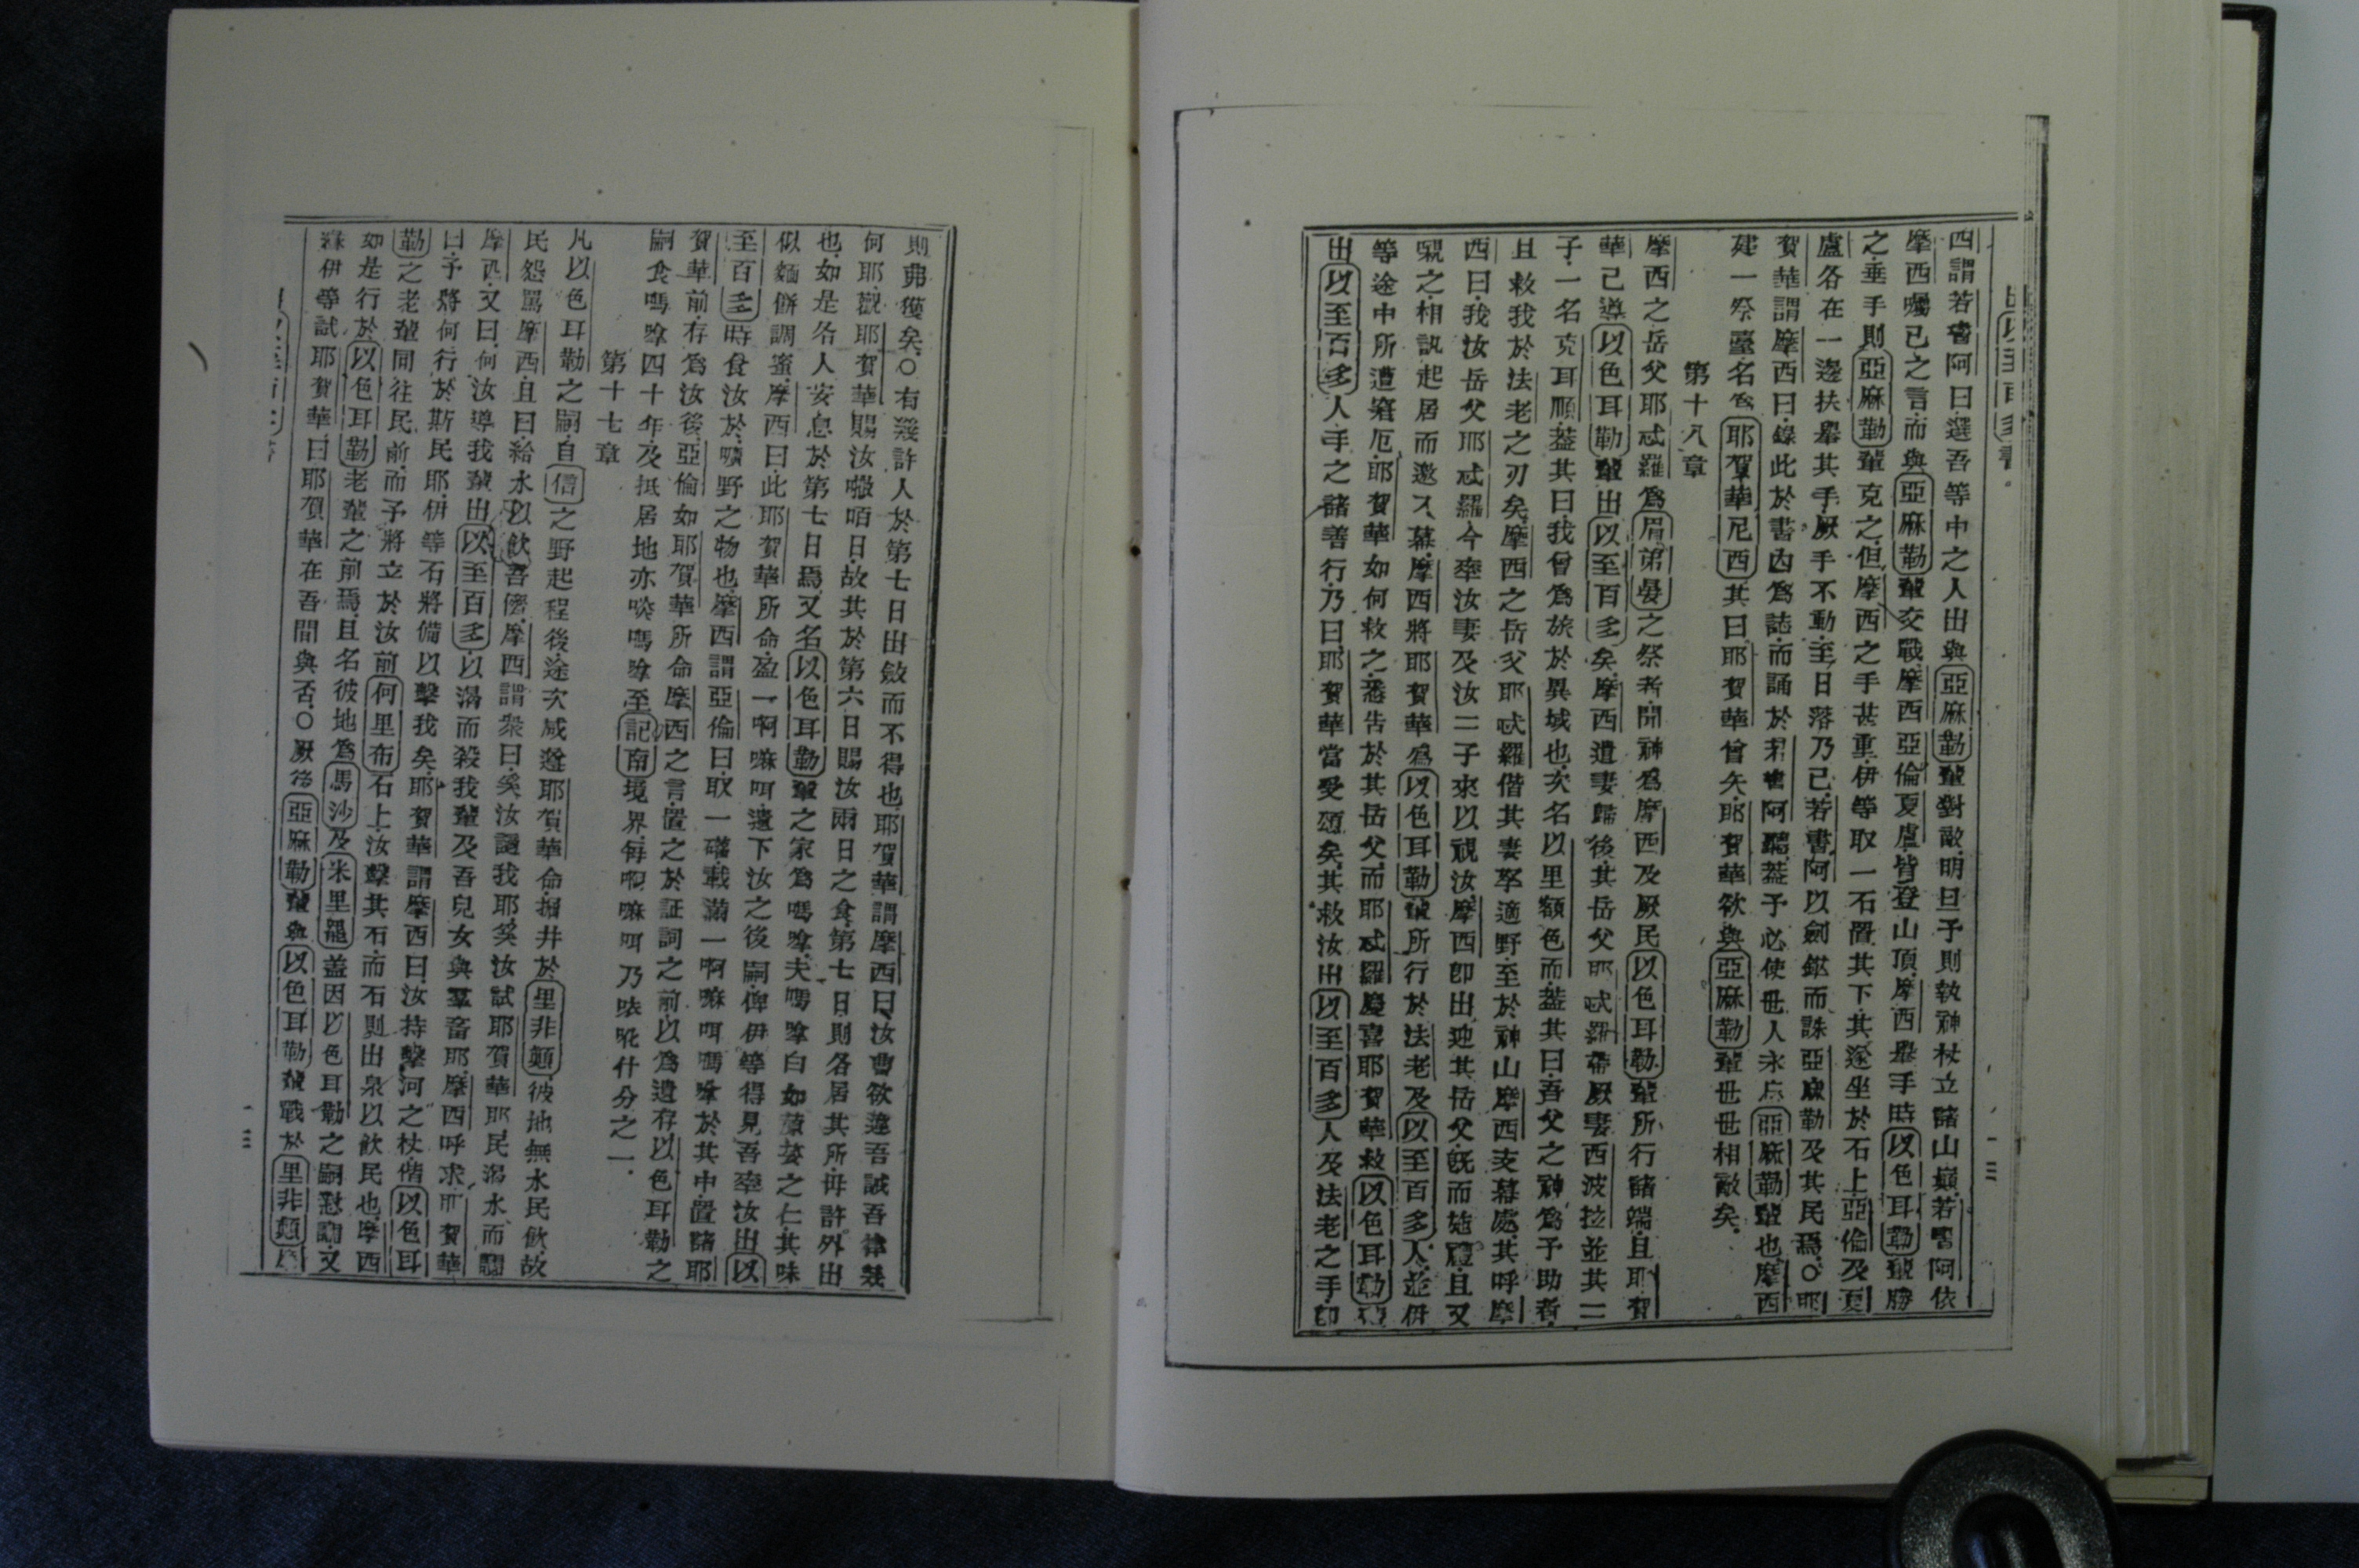 則弗獲矣○有幾許人於第七日出斂而不得也耶賀華謂摩西曰汝曹欲違吾誡吾律幾
何耶觀耶賀華賜汝咟日故其於第六日賜汝兩日之食第七日則各居其所毋許外出
也如是各人安息於第七日焉又名以色耳勒輩之家為嗎㖔夫嗎㖔白如荽之仁其味
似麵餅調蜜摩西曰此耶賀華所命盈一啊嘛呵遺下汝之後嗣俾伊等得見吾牽汝出以
至百多時食汝於嚝野之物也摩西謂亞倫曰取一礶載滿一啊嘛呵嗎㖔於其中置諸耶
賀華前存為汝後亞倫如耶賀華所命摩西之言置之於証詞之前以為遺存以色耳勒之
嗣食嗎㖔四十年及抵居地亦啖嗎㖔至記南境界每啊嘛呵乃什分之一
第十七章
凡以色耳勒之嗣自信之野起程後途次咸遵耶賀華命掘井於里非顛彼地無水民飲故
民怨罵摩西且曰給水以飲吾儕摩西謂衆曰奚汝譋我耶奚汝試耶賀華耶民渴水而譋
摩西又曰何汝導我輩出以至百多以渴而殺我輩及吾兒女與羣畜耶摩西呼求耶賀華
曰予將何行於斯民耶伊等石將備以擊我矣耶賀華謂摩西曰汝持擊河之杖偕以色耳
勒之老輩同往民前而予將立於汝前何里布石上汝擊其石而石則出泉以飲民也摩西
如是行於以色耳勒老輩之前焉且名彼地為馬沙及米里罷蓋因以色耳勒之嗣懟譋又
緣伊等試耶賀華曰耶賀華在吾間與否○厥後亞麻勒輩與以色耳勒輩戰於里非顛摩
西謂若書阿曰選吾等中之人出與亞麻勒輩對敵明旦予則執神杖立諸山巔若書阿依
摩西囑已之言而與亞麻勒輩交戰摩西亞倫夏盧皆登山頂摩西舉手時以色耳勒輩勝
之垂手則亞麻勒輩克之但摩西之手甚重伊等取一石置其下其遂坐於石上亞倫及夏
盧各在一邊扶舉其手厥手不動至日落乃已若書阿以劍鋐而誅亞麻勒及其民焉○耶
賀華謂摩西曰錄此於書內為誌而誦於若書阿聽蓋予必使世人永忘亞麻勒輩也摩西
建一祭臺名為耶賀華尼西其曰耶賀華曾矢耶賀華欲與亞麻勒輩世世相敵矣
第十八章
摩西之岳父耶忒羅為眉第晏之祭者聞神為摩西及厥民以色耳勒輩所行諸端且耶賀
華已導以色耳勒輩出以至百多矣摩西遣妻歸後其岳父耶忒羅帶厥妻西波拉並其二
子一名克耳順蓋其曰我曾為旅於異域也次名以里額色而蓋其曰吾父之神為予助者
且救我於法老之刃矣摩西之岳父耶忒羅偕其妻孥適野至於神山摩西支幕處其呼摩
西曰我汝岳父耶忒羅今牽汝妻及汝二子來以視汝摩西即出迎其岳父旣而施禮且又
嚫之相訊起居而邀入幕摩西將耶賀華為以色耳勒輩所行於法老及以至百多人並伊
等途中所遭窘厄耶賀華如何救之悉告於其岳父而耶忒羅慶喜耶賀華救以色耳勒輩
出以至百多人手之諸善行乃曰耶賀華當受頌矣其救汝出以至百多人及法老之手即